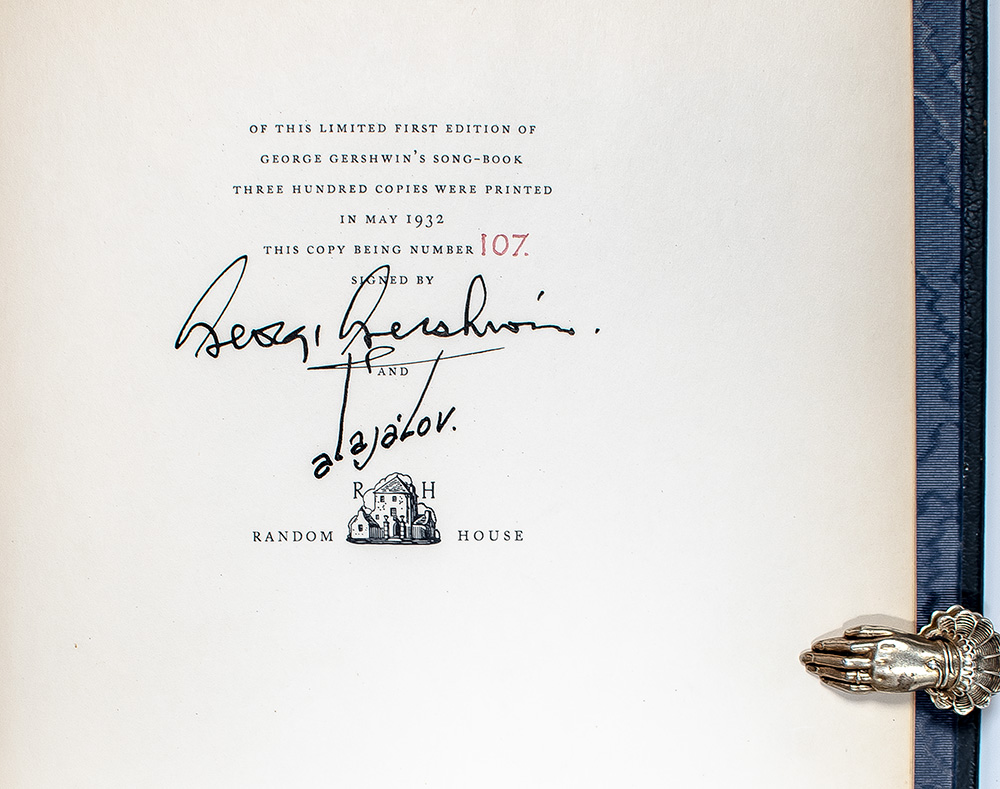 OF THIS LIMITED FIRST EDITION OF
GEORGE GERSHWIN'S SONG-BOOK
THREE HUNDRED COPIES WERE PRINTED
IN MAY 1932
THIS COPY BEING NUMBER 107.
SIGNED BY
George Gershwin.
AND
alajálov.
R H
RANDOM HOUSE